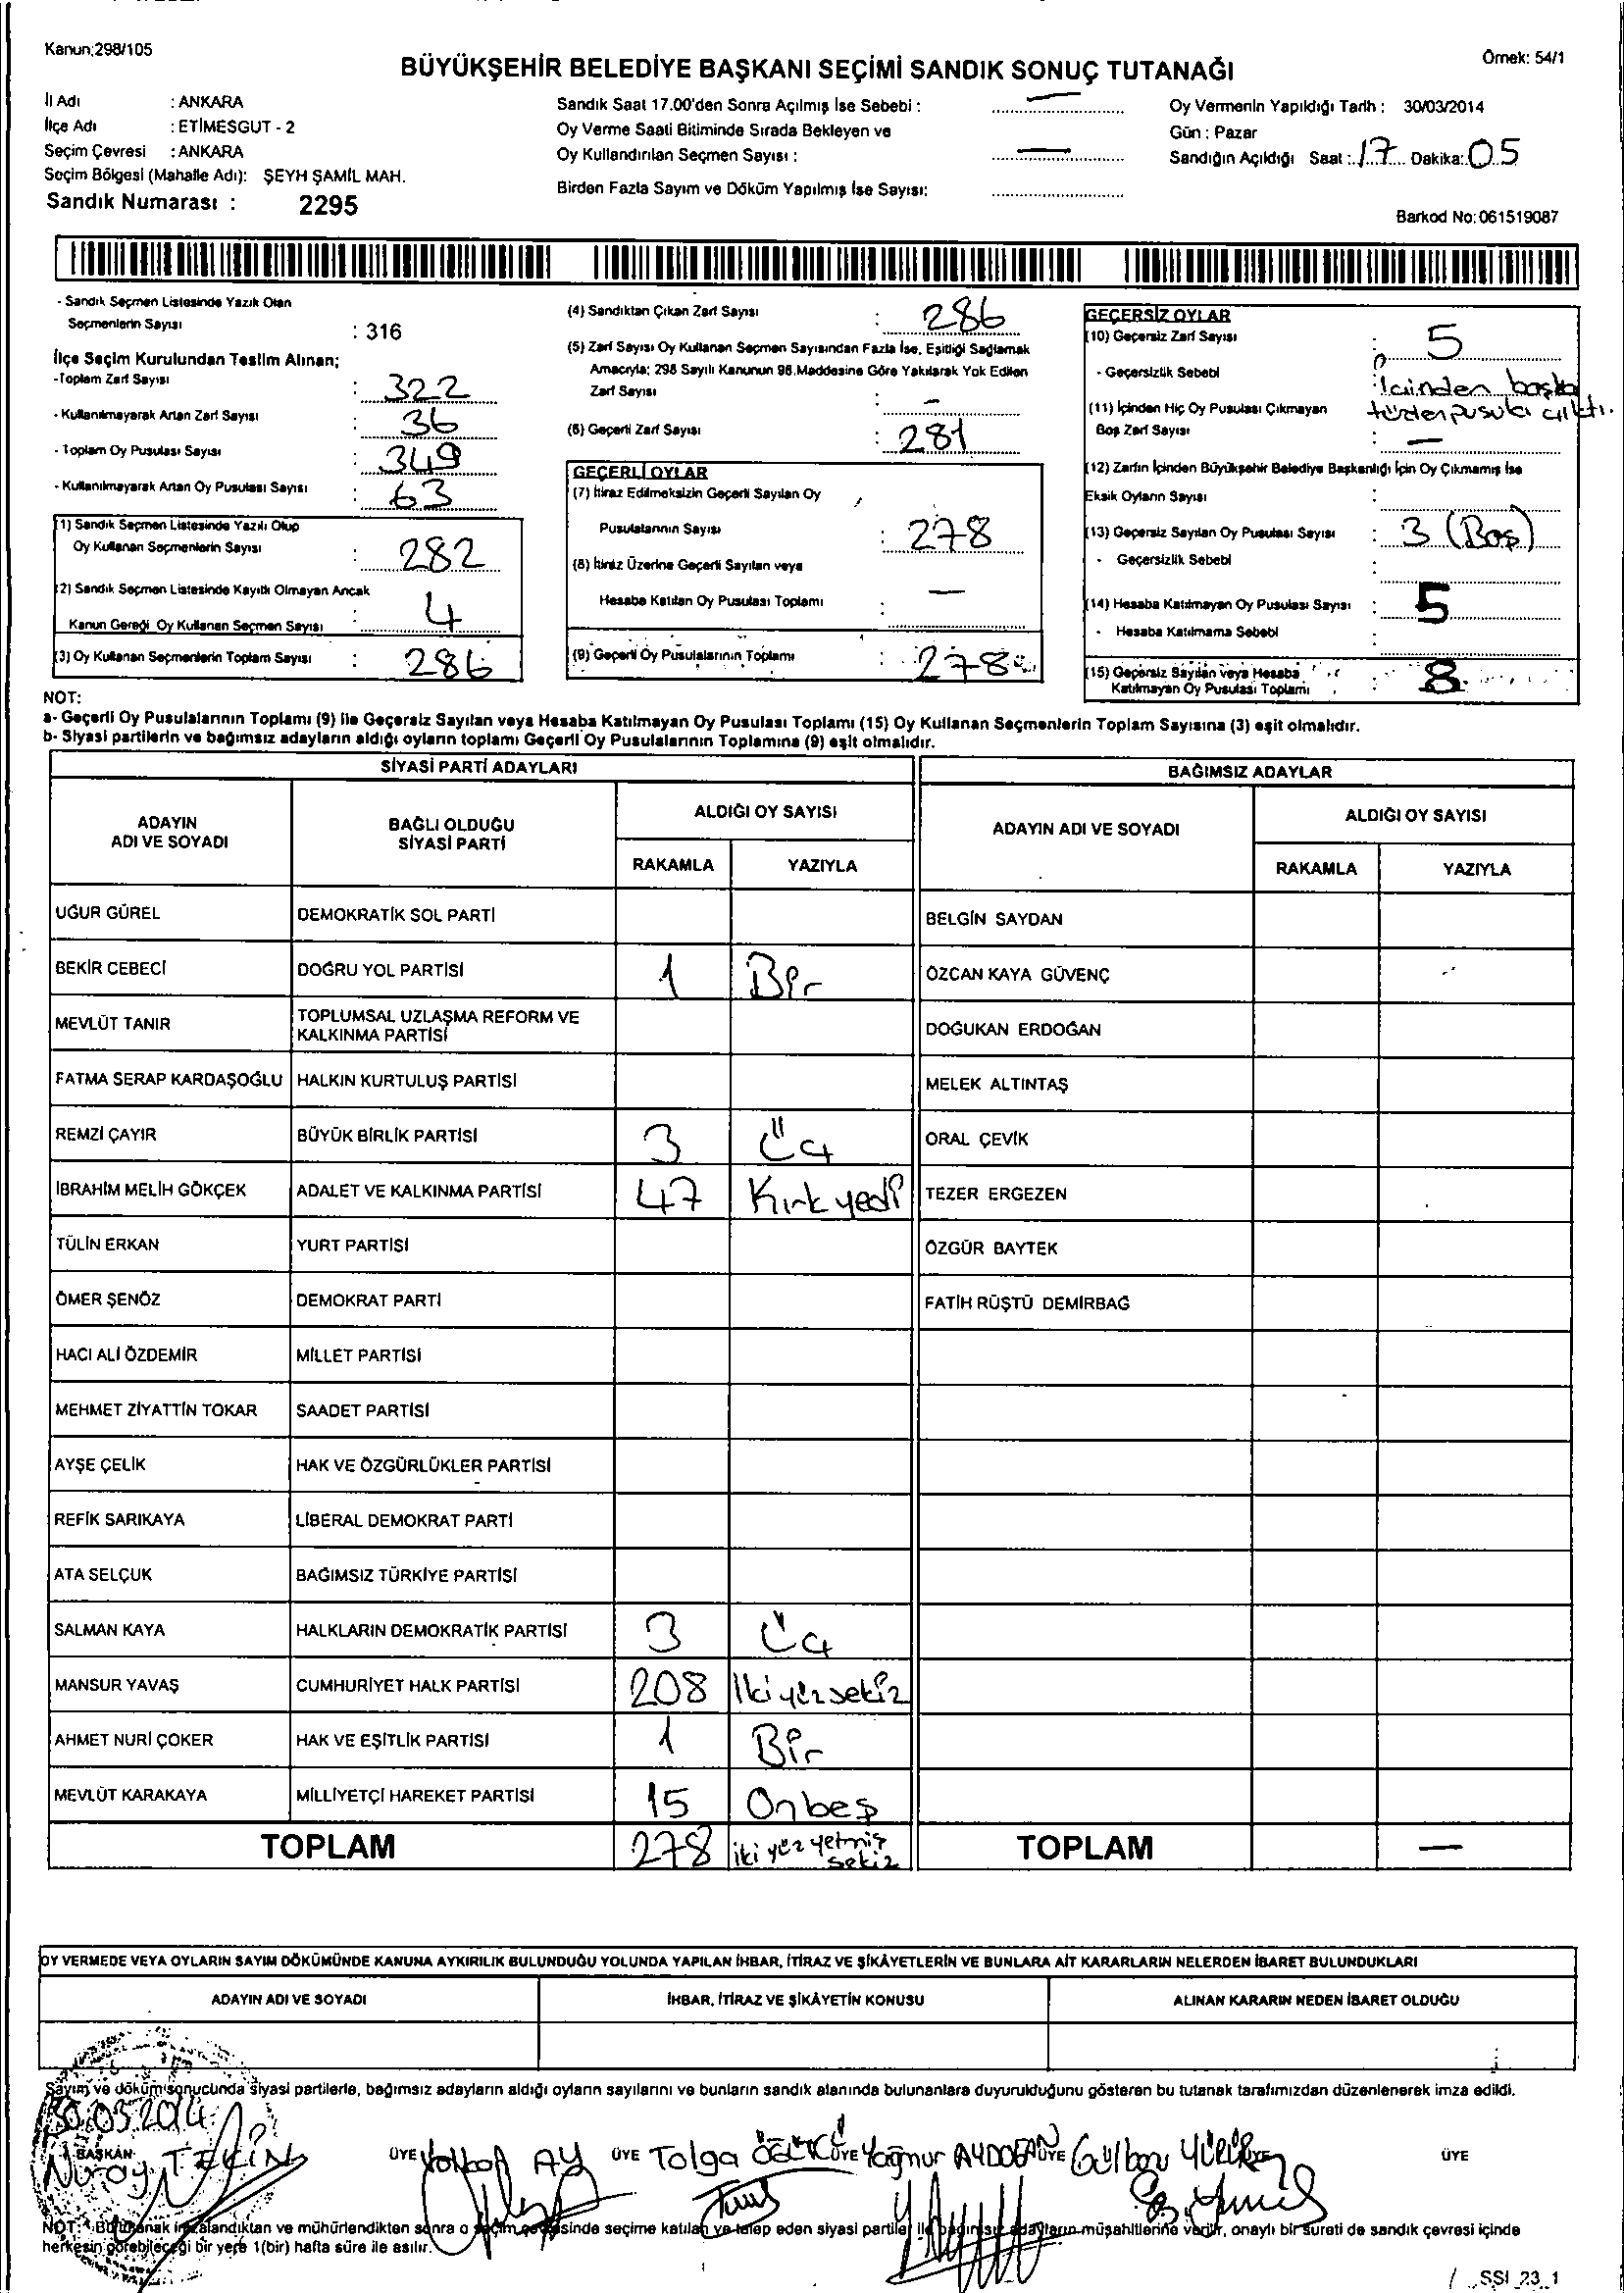 Kanun;298/105
Örnek: 54/1
BÜYÜKŞEHİR BELEDİYE BAŞKANI SEÇİMİ SANDIK SONUÇ TUTANAĞI
İl Adı : ANKARA
İlçe Adı : ETİMESGUT - 2
Seçim Çevresi : ANKARA
Seçim Bölgesi (Mahalle Adı): ŞEYH ŞAMİL MAH.
Sandık Numarası : 2295
Sandık Saat 17.00'den Sonra Açılmış İse Sebebi : —
Oy Verme Saati Bitiminde Sırada Bekleyen ve
Oy Kullandırılan Seçmen Sayısı : —
Birden Fazla Sayım ve Döküm Yapılmış İse Sayısı:
Oy Vermenin Yapıldığı Tarih : 30/03/2014
Gün : Pazar
Sandığın Açıldığı Saat : 17 Dakika: 05
Barkod No: 061519087
- Sandık Seçmen Listesinde Yazılı Olan
Seçmenlerin Sayısı : 316
İlçe Seçim Kurulundan Teslim Alınan;
-Toplam Zarf Sayısı : 322
- Kullanılmayarak Artan Zarf Sayısı : 36
- Toplam Oy Pusulası Sayısı : 349
- Kullanılmayarak Artan Oy Pusulası Sayısı : 63
(1) Sandık Seçmen Listesinde Yazılı Olup
Oy Kullanan Seçmenlerin Sayısı : 282
(2) Sandık Seçmen Listesinde Kayıtlı Olmayan Ancak
Kanun Gereği Oy Kullanan Seçmen Sayısı : 4
(3) Oy Kullanan Seçmenlerin Toplam Sayısı : 286
(4) Sandıktan Çıkan Zarf Sayısı : 286
(5) Zarf Sayısı Oy Kullanan Seçmen Sayısından Fazla İse, Eşitliği Sağlamak
Amacıyla; 298 Sayılı Kanunun 98.Maddesine Göre Yakılarak Yok Edilen
Zarf Sayısı : –
(6) Geçerli Zarf Sayısı : 281
GEÇERLİ OYLAR
(7) İtiraz Edilmeksizin Geçerli Sayılan Oy
Pusulalarının Sayısı : 278
(8) İtiraz Üzerine Geçerli Sayılan veya
Hesaba Katılan Oy Pusulası Toplamı : —
(9) Geçerli Oy Pusulalarının Toplamı : 278
GEÇERSİZ OYLAR
(10) Geçersiz Zarf Sayısı : 5
- Geçersizlik Sebebi : İçinden başka
türden pusula çıktı.
(11) İçinden Hiç Oy Pusulası Çıkmayan
Boş Zarf Sayısı : —
(12) Zarfın İçinden Büyükşehir Belediye Başkanlığı İçin Oy Çıkmamış İse
Eksik Oyların Sayısı :
(13) Geçersiz Sayılan Oy Pusulası Sayısı : 3 (Boş)
- Geçersizlik Sebebi :
(14) Hesaba Katılmayan Oy Pusulası Sayısı : 5
- Hesaba Katılmama Sebebi :
(15) Geçersiz Sayılan veya Hesaba
Katılmayan Oy Pusulası Toplamı : 8
NOT:
a- Geçerli Oy Pusulalarının Toplamı (9) ile Geçersiz Sayılan veya Hesaba Katılmayan Oy Pusulası Toplamı (15) Oy Kullanan Seçmenlerin Toplam Sayısına (3) eşit olmalıdır.
b- Siyasi partilerin ve bağımsız adayların aldığı oyların toplamı Geçerli Oy Pusulalarının Toplamına (9) eşit olmalıdır.
SİYASİ PARTİ ADAYLARI
ADAYIN ADI VE SOYADI BAĞLI OLDUĞU SİYASİ PARTİ ALDIĞI OY SAYISI
RAKAMLA YAZIYLA
UĞUR GÜREL DEMOKRATİK SOL PARTİ
BEKİR CEBECİ DOĞRU YOL PARTİSİ 1 Bir
MEVLÜT TANIR TOPLUMSAL UZLAŞMA REFORM VE KALKINMA PARTİSİ
FATMA SERAP KARDAŞOĞLU HALKIN KURTULUŞ PARTİSİ
REMZİ ÇAYIR BÜYÜK BİRLİK PARTİSİ 3 Üç
İBRAHİM MELİH GÖKÇEK ADALET VE KALKINMA PARTİSİ 47 Kırkyedi
TÜLİN ERKAN YURT PARTİSİ
ÖMER ŞENÖZ DEMOKRAT PARTİ
HACI ALİ ÖZDEMİR MİLLET PARTİSİ
MEHMET ZİYATTİN TOKAR SAADET PARTİSİ
AYŞE ÇELİK HAK VE ÖZGÜRLÜKLER PARTİSİ
REFİK SARIKAYA LİBERAL DEMOKRAT PARTİ
ATA SELÇUK BAĞIMSIZ TÜRKİYE PARTİSİ
SALMAN KAYA HALKLARIN DEMOKRATİK PARTİSİ 3 Üç
MANSUR YAVAŞ CUMHURİYET HALK PARTİSİ 208 İkiyüzsekiz
AHMET NURİ ÇOKER HAK VE EŞİTLİK PARTİSİ 1 Bir
MEVLÜT KARAKAYA MİLLİYETÇİ HAREKET PARTİSİ 15 Onbeş
TOPLAM 278 iki yüz yetmiş sekiz
BAĞIMSIZ ADAYLAR
ADAYIN ADI VE SOYADI ALDIĞI OY SAYISI
RAKAMLA YAZIYLA
BELGİN SAYDAN
ÖZCAN KAYA GÜVENÇ
DOĞUKAN ERDOĞAN
MELEK ALTINTAŞ
ORAL ÇEVİK
TEZER ERGEZEN
ÖZGÜR BAYTEK
FATİH RÜŞTÜ DEMİRBAĞ
TOPLAM —
OY VERMEDE VEYA OYLARIN SAYIM DÖKÜMÜNDE KANUNA AYKIRILIK BULUNDUĞU YOLUNDA YAPILAN İHBAR, İTİRAZ VE ŞİKÂYETLERİN VE BUNLARA AİT KARARLARIN NELERDEN İBARET BULUNDUKLARI
ADAYIN ADI VE SOYADI İHBAR, İTİRAZ VE ŞİKÂYETİN KONUSU ALINAN KARARIN NEDEN İBARET OLDUĞU
Sayım ve döküm sonucunda siyasi partilerle, bağımsız adayların aldığı oyların sayılarını ve bunların sandık alanında bulunanlara duyurulduğunu gösteren bu tutanak tarafımızdan düzenlenerek imza edildi.
30.03.2014
BAŞKAN ÜYE ÜYE ÜYE ÜYE ÜYE
Nuray TEKİN AY Tolga Yağmur AYDOĞAN
NOT: Bu tutanak imzalandıktan ve mühürlendikten sonra o seçim çevresinde seçime katılan ve talep eden siyasi partiler ile bağımsız adayların müşahitlerine verilir, onaylı bir sureti de sandık çevresi içinde
herkesin görebileceği bir yere 1(bir) hafta süre ile asılır.
SSI_23_1